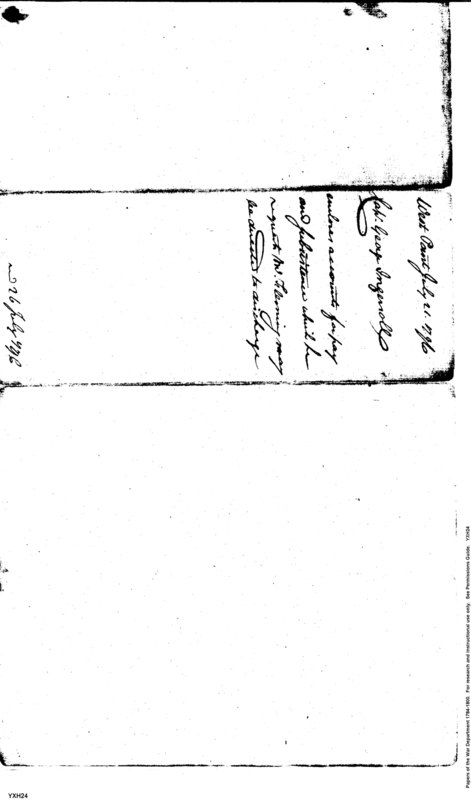 West Point July 21. 1796
Capt. George Ingersoll
encloses accounts for pay
and subsistence which he
requests Mr. Fleming may
be directed to discharge
26 July 1796
Papers of the War Department 1784-1800. For research and instructional use only. See Permissions Guide. YXH24
YXH24